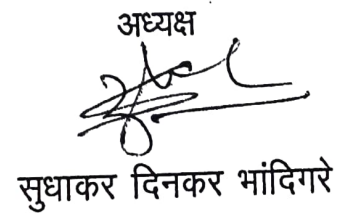 अध्यक्ष
सुधाकर दिनकर भांदिगरे